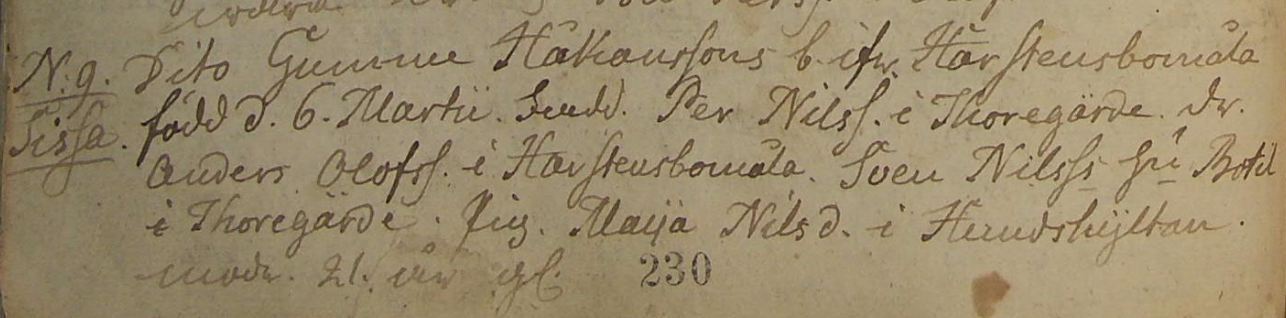 N. 9. Dito Gumme Håkanssons b. ifr. Harstensbomåla
Sissa. född d. 6. Martii. Sudd. Per Nilss. i Thoregärde. dr.
Anders Olofss. i Harstensbomåla. Sven Nilss Hu Botil
i Thoregärde. Pig. Maija Nilsd. i Hundshyltan.
modr. 21. år gl. 230